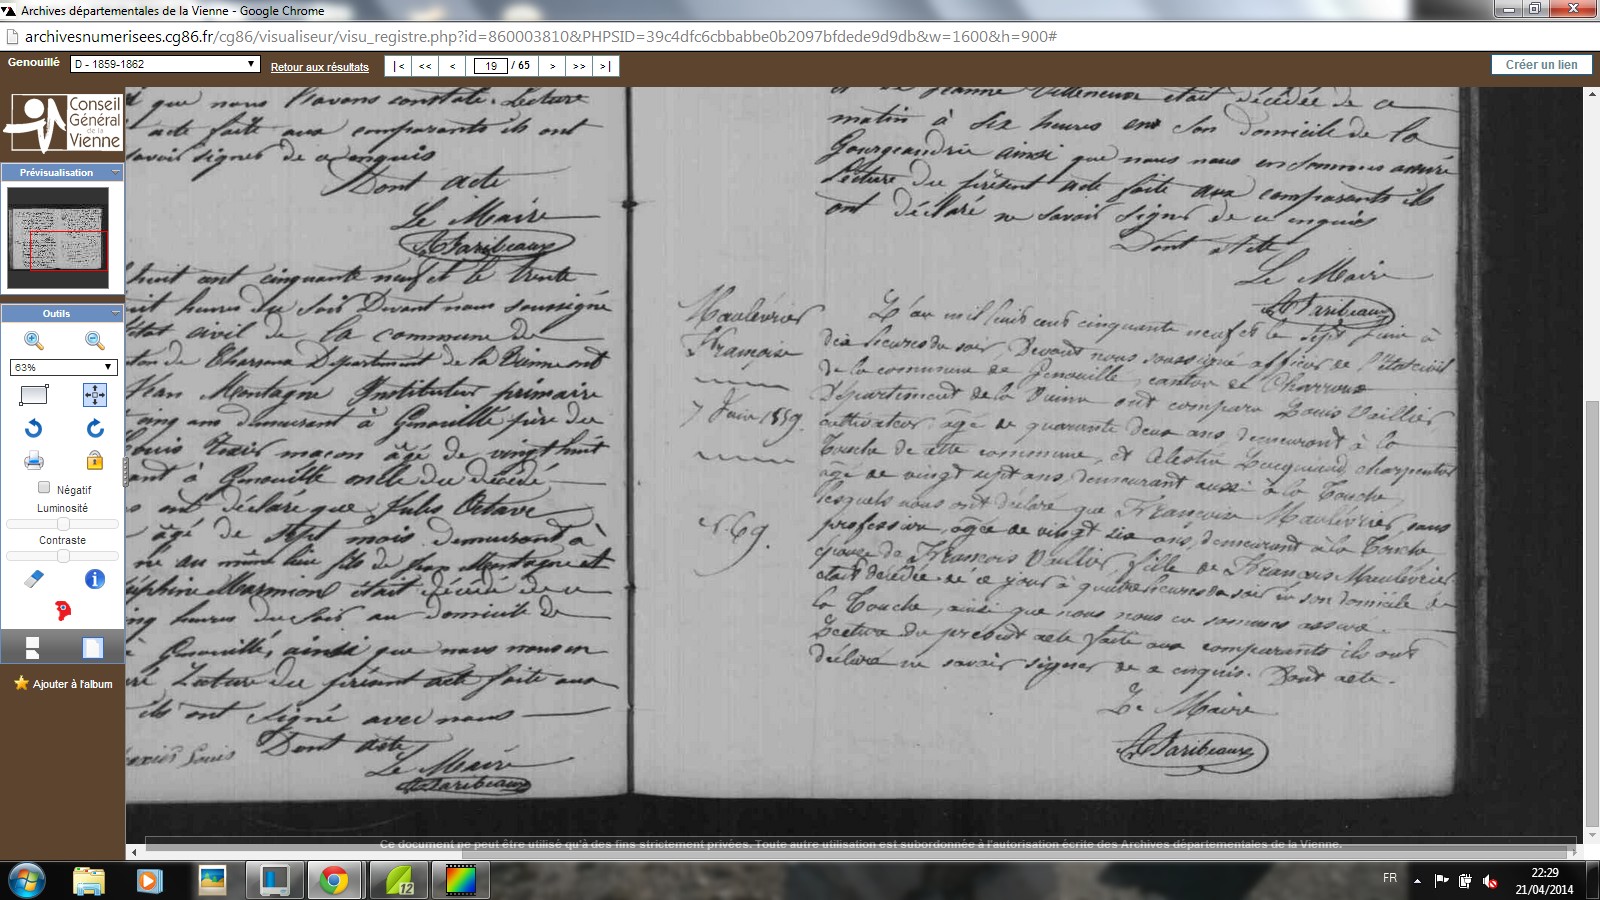 Archives départementales de la Vienne - Google Chrome
archivesnumerisees.cg86.fr/cg86/visualiseur/visu_registre.php?id=860003810&PHPSID=39c4dfc6cbbabbe0b2097bfdede9d9db&w=1600&h=900#
Genouillé
D - 1859-1862
Retour aux résultats
|<
<<
<
19 / 65
>
>>
>|
Créer un lien
Conseil
Général
de la
Vienne
Prévisualisation
Outils
63%
Négatif
Luminosité
Contraste
Ajouter à l'album
que nous l'avons constaté. Lecture
acte faite aux comparants ils ont
savoir signer de ce enquis
Dont acte
Le Maire
huit cent cinquante neuf et le trente
huit heures du soir Devant nous soussigné
état civil de la commune de
Département de la Vienne ont
Jean Montagne Instituteur primaire
cinq ans demeurant à Genouillé père du
Louis Texier maçon âgé de vingt huit
à Genouillé oncle du décédé
ont déclaré que Jules Octave
âgé de sept mois demeurant à
né au même lieu fils de Jean Montagne et
Marmion était décédé de ce
cinq heures du soir au domicile de
à Genouillé, ainsi que nous nous en
Lecture du présent acte faite aux
ils ont signé avec nous
Dont acte
Texier Louis
Le Maire
Jeanne Villeneuve était décédée de ce
matin à six heures en son domicile de la
ainsi que nous nous en sommes assuré
Lecture du présent acte faite aux comparants ils
ont déclaré ne savoir signer de ce enquis
Dont acte
Le Maire
Maulévrier
Françoise
7 Juin 1859.
N. 69.
L'an mil huit cent cinquante neuf et le sept Juin à
dix heures du soir, Devant nous soussigné officier de l'état civil
de la commune de Genouillé, canton de Charroux
Département de la Vienne ont comparu Louis Vaillier
cultivateur, âgé de quarante deux ans, demeurant à la
Touche de cette commune, et Célestin charpentier
âgé de vingt sept ans, demeurant aussi à la Touche,
lesquels nous ont déclaré que Françoise Maulévrier, sans
profession, agée de vingt six ans, demeurant à la Touche
épouse de François Vaillier, fille de François Maulévrier
était décédée de ce jour à quatre heures du soir en son domicile de
la Touche, ainsi que nous nous en sommes assuré.
Lecture du présent acte faite aux comparants ils ont
déclaré ne savoir signer de ce enquis. Dont acte.
Le Maire
Ce document ne peut être utilisé qu'à des fins strictement privées. Toute autre utilisation est subordonnée à l'autorisation écrite des Archives départementales de la Vienne.
12
FR
22:29
21/04/2014